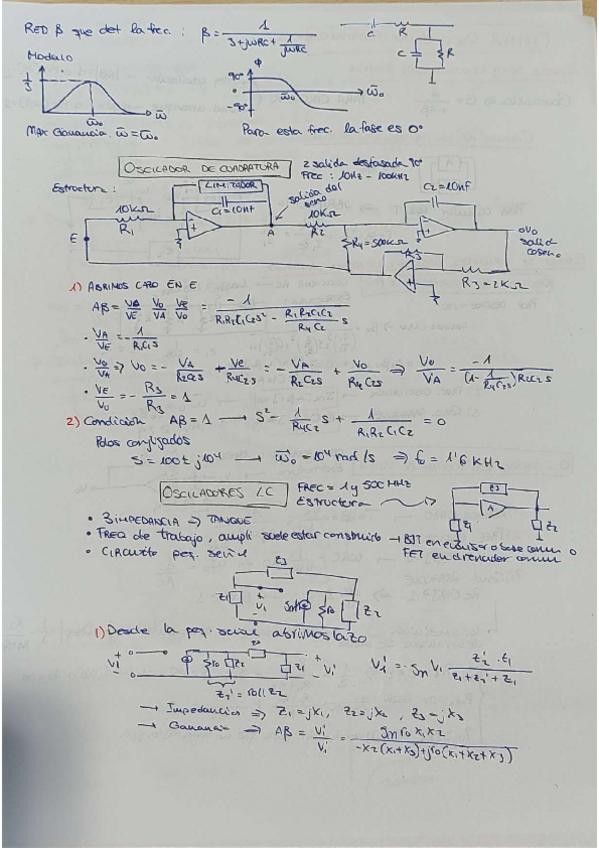 RED β que det la frec. : β = 1 / (3 + jωRC + 1/jωRC)
C R
C R
Modulo
1/3
ω̄
ω̄o
Max Ganancia ω̄ = ω̄o
Φ
90°
-90°
ω̄o
ω̄o
Para esta frec. la fase es 0°
OSCILADOR DE CUADRATURA
2 salida desfasada 90°
Frec : 10Hz - 100kHz
Estructura :
LIMITADOR
C1=10nF
10KΩ
R1
E
A
salida del seno
10KΩ
R2
C2=10nF
R4=500KΩ
R3
R3=2KΩ
Vo
salid
coseno
1) ABRIMOS LAZO EN E
Aβ = VA/VE · Vo/VA · VE/Vo = -1 / (R1R2C1C2S² - (R1R2C1C2 / R4C2) S)
· VA/VE = - 1/R1C1S
· Vo/VA ⇒ Vo = - VA/R2C2S + Ve/R4C2S = - VA/R2C2S + Vo/R4C2S ⇒ Vo/VA = -1 / ((1 - 1/R4C2S) R2C2S)
· VE/Vo = - R3/R3 = 1
2) Condición Aβ = 1 → S² - 1/R4C2 S + 1/R1R2C1C2 = 0
Polos conjugados
S = 100 ± j10⁴ → ω̄o = 10⁴ rad/s ⇒ fo = 1'6 KHz
OSCILADORES LC
FREC = 1 y 500 MHz
Estructura
Z3
A
Z1
Z2
• 3 IMPEDANCIA → TANQUE
• FREQ de trabajo, ampli suele estar construido → BJT en emisor o base comun o
FET en drenador comun
• CIRCUITO peq. señal
Z3
Z1
+ Vi -
gmVi
ro
Z2
1) Desde la peq. señal abrimos lazo
Z3
+ Vi -
ro
Z2
Z1
+ Vi' -
Z2' = ro || Z2
Vi' = -gm Vi Z2' · Z1 / (Z1 + Z2' + Z1)
→ Impedancias ⇒ Z1 = jX1, Z2 = jX2, Z3 = jX3
→ Ganancia ⇒ Aβ = Vi'/Vi = gm ro X1 X2 / (-X2(X1+X3) + jro(X1+X2+X3))